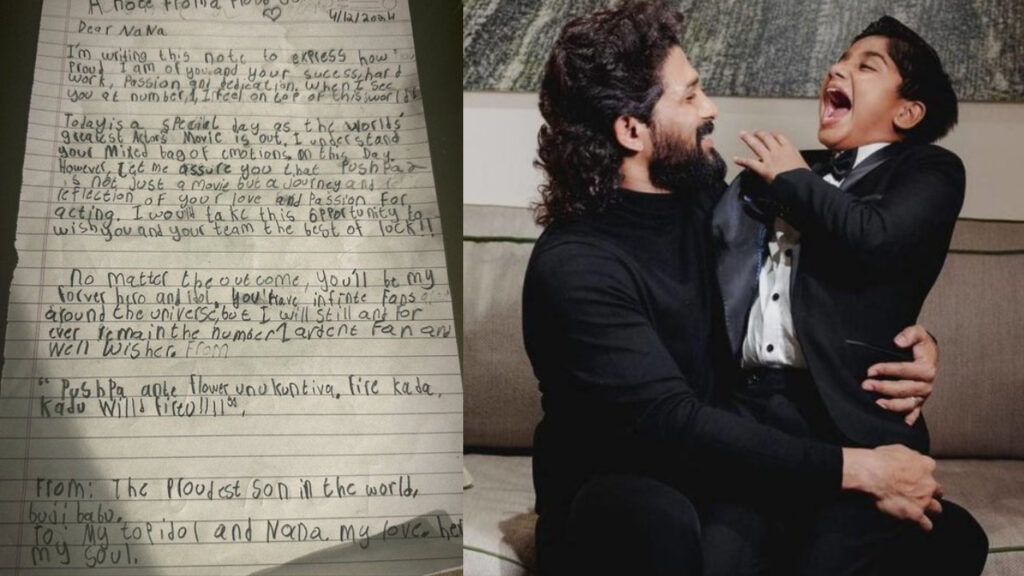 A note from a Proud So
4/12/2024
Dear NaNa
I'm writing this note to express how
Proud I am of you and your success, hard
work, Passion and dedication. When I see
you at number 1, I feel on top of this world
Today is a special day as the worlds'
greatest Actors Movie is out. I understand
your Mixed bag of emotions on this Day.
However, Let me assure you that Pushpa 2
is not Just a movie but a Journey and
reflection of your love and Passion for
acting. I would take this opportunity to
wish you and your team the best of lock!!
No matter the outcome, you'll be my
Forver hero and idol. you have infinte Fans
around the universe, but I will still and for
ever remain the number 1 ardent Fan and
Well Wisher From
" Pushpa ante flower unukuntiva, Fire kada,
Kadu Willd Fire!!!!",
From: The Ploudest Son in the world,
budi babu.
To: My top idol and Nana. my love, her
my soul.